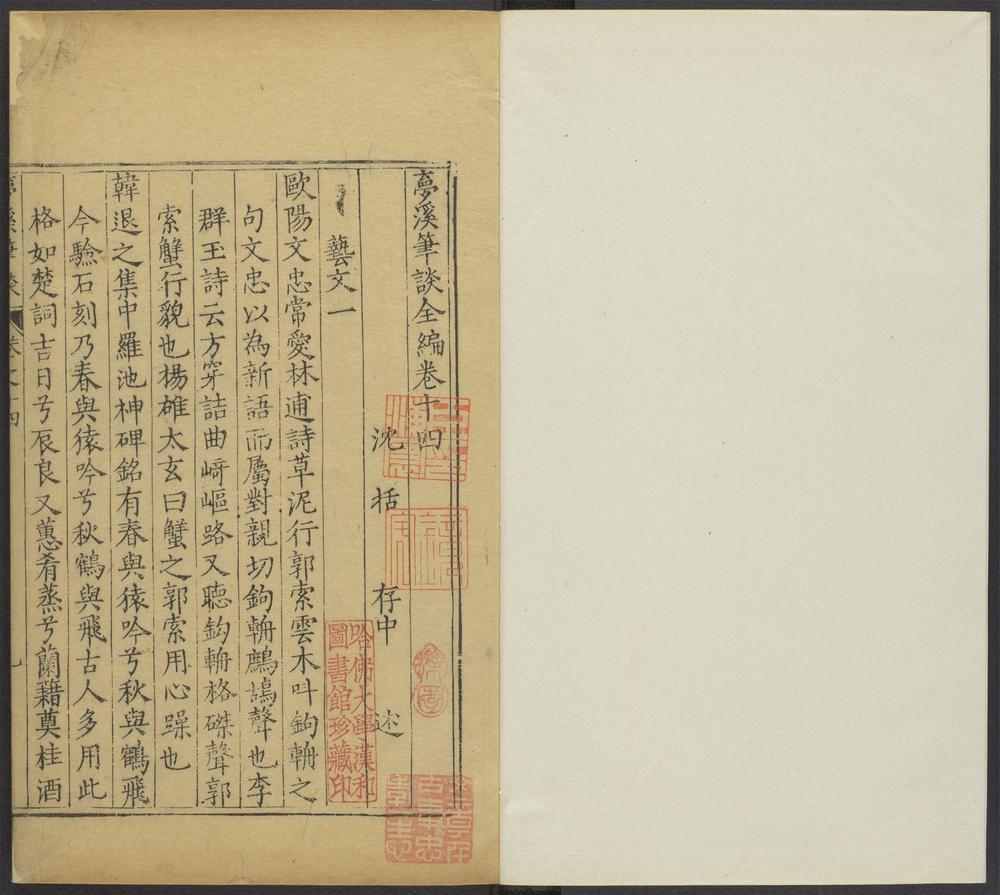 夢溪筆談全編卷十四
沈括存中述
藝文一
歐陽文忠常愛林逋詩草泥行郭索雲木呌鉤輈之
句文忠以為新語而屬對親切鉤輈鷓鴣聲也李
群玉詩云方穿詰曲崎嶇路又聴鈎輈格磔聲郭
索蟹行貌也楊雄太玄曰蟹之郭索用心躁也
韓退之集中羅池神碑銘有春與猿吟兮秋與鶴飛
今驗石刻乃春與猿吟兮秋鶴與飛古人多用此
格如楚詞吉日兮辰良又蕙肴蒸兮蘭籍奠桂酒
哈佛大學漢和
圖書館珍藏印